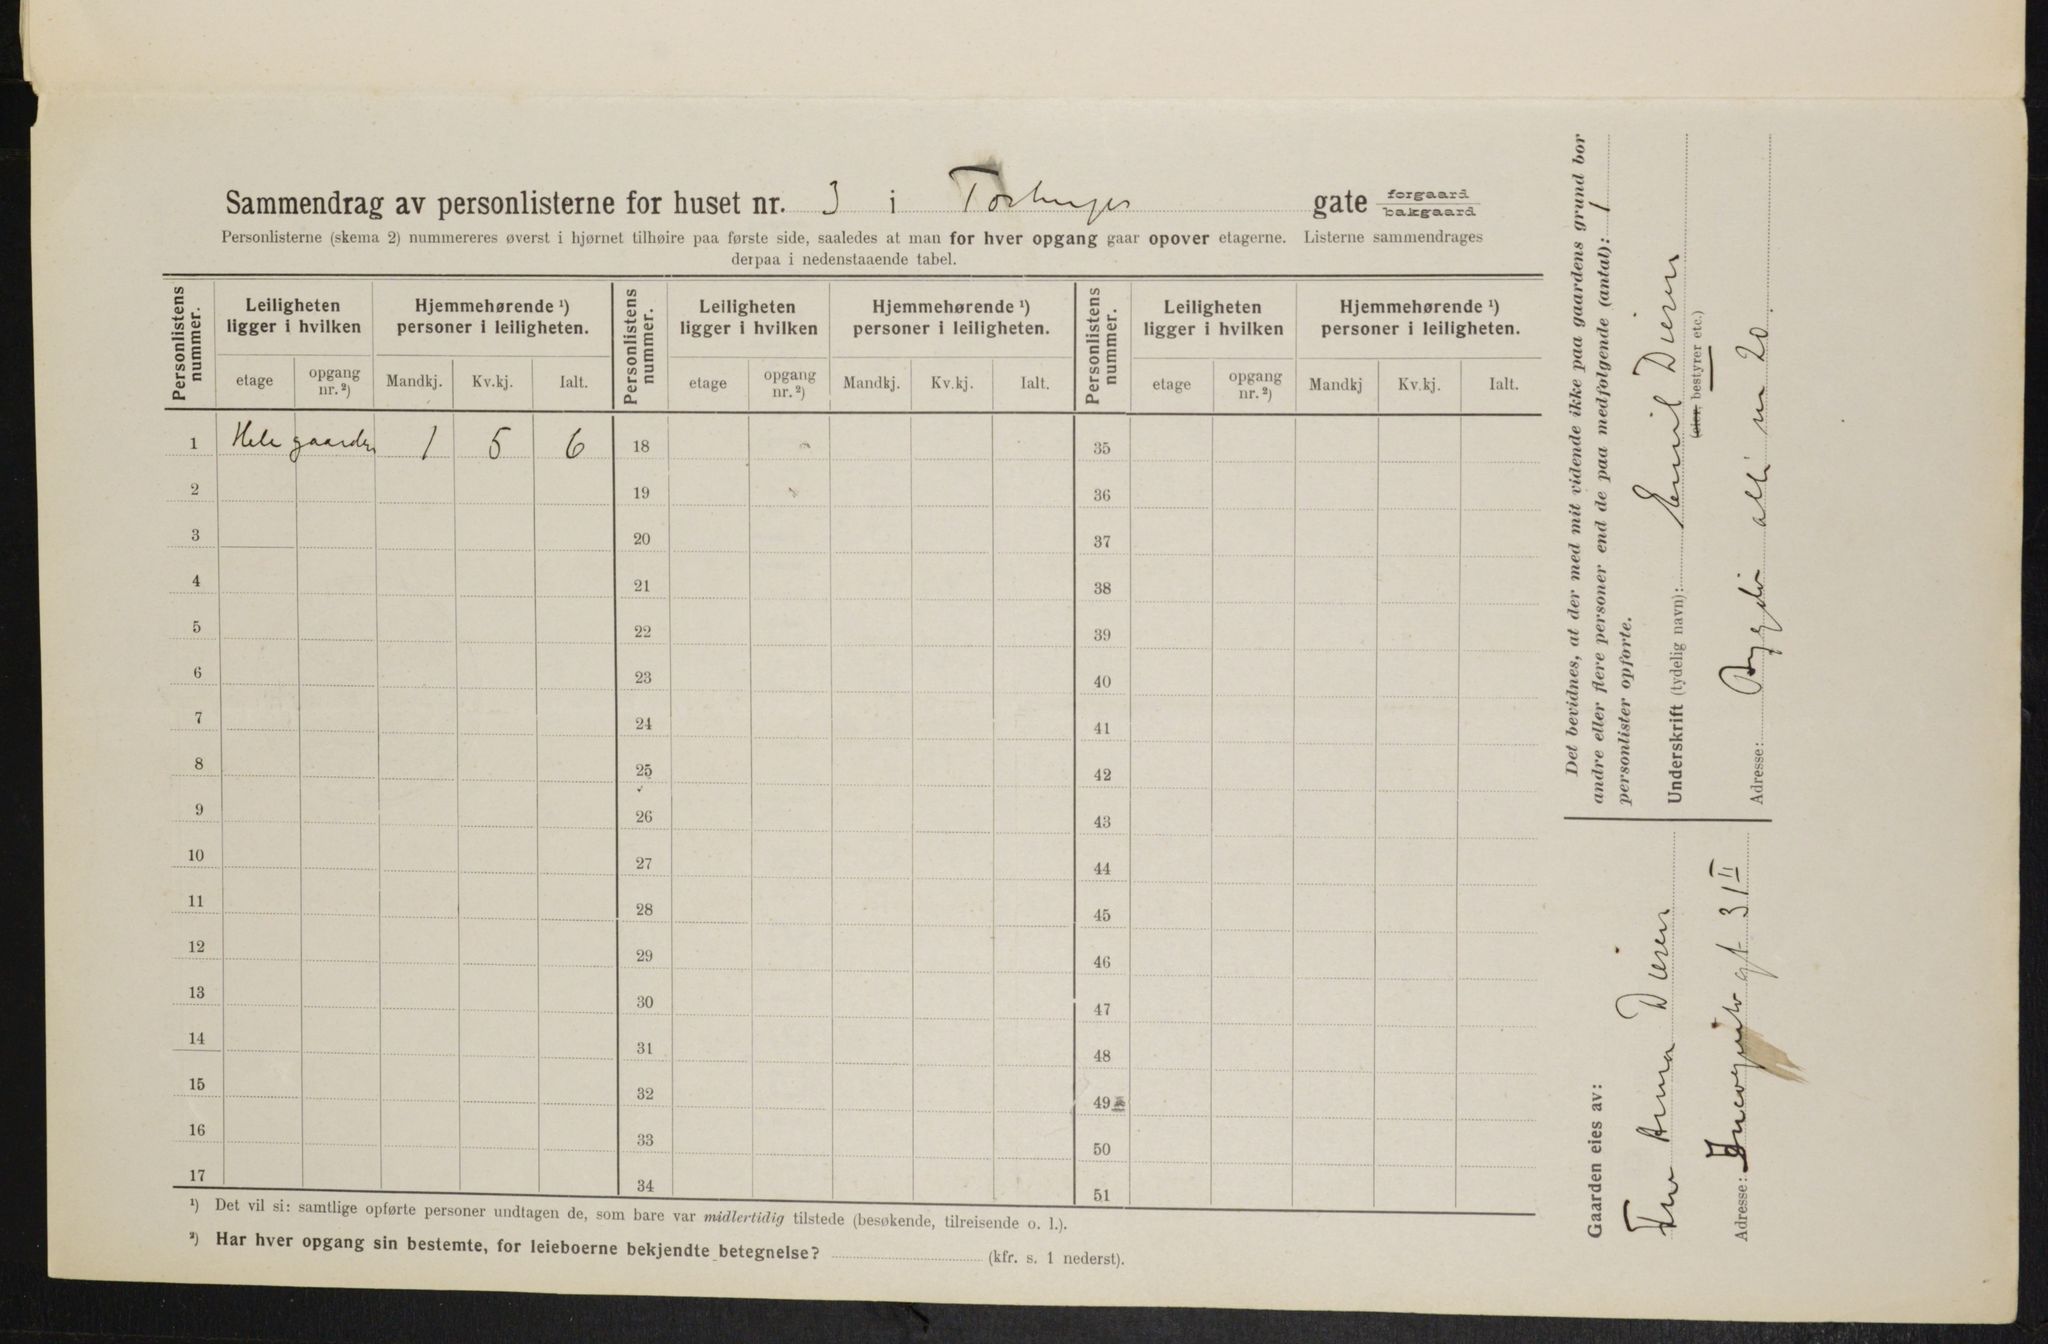 Sammendrag av personlisterne for huset nr. 3 i gate forgaard bakgaard
Personlisterne (skema 2) nummereres øverst i hjørnet tilhøire paa første side, saaledes at man for hver opgang gaar opover etagerne. Listerne sammendrages
derpaa i nedenstaaende tabel.
Personlistens nummer. Leiligheten ligger i hvilken Hjemmehørende ¹) personer i leiligheten. Personlistens nummer. Leiligheten ligger i hvilken Hjemmehørende ¹) personer i leiligheten. Personlistens nummer. Leiligheten ligger i hvilken Hjemmehørende ¹) personer i leiligheten.
etage opgang nr. ²) Mandkj. Kv.kj. Ialt. etage opgang nr. ²) Mandkj. Kv.kj. Ialt. etage opgang nr. ²) Mandkj Kv.kj. Ialt.
1 Hele gaarden 1 5 6 18 35
2 19 36
3 20 37
4 21 38
5 22 39
6 23 40
7 24 41
8 25 42
9 26 43
10 27 44
11 28 45
12 29 46
13 30 47
14 31 48
15 32 49
16 33 50
17 34 51
¹) Det vil si: samtlige opførte personer undtagen de, som bare var midlertidig tilstede (besøkende, tilreisende o. l.).
²) Har hver opgang sin bestemte, for leieboerne bekjendte betegnelse? (kfr. s. 1 nederst).
Det bevidnes, at der med mit vidende ikke paa gaardens grund bor
andre eller flere personer end de paa medfølgende (antal): 1
personlister opførte.
Underskrift (tydelig navn): Emil Diesen
(eier, bestyrer etc.)
Adresse: Bygdø allé nr 20
Gaarden eies av:
Fru Anna Diesen
Adresse: Incognito gt 31 II